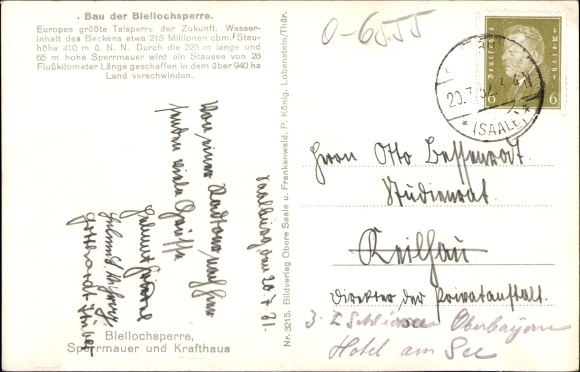 Bau der Bleilochsperre.
Europas größte Talsperre der Zukunft. Wasser-
inhalt des Beckens etwa 215 Millionen cbm./Stau-
höhe 410 m ü. N. N. Durch die 225 m lange und
65 m hohe Sperrmauer wird ein Stausee von 28
Flußkilometer Länge geschaffen in dem über 940 ha
Land verschwinden.
0-6555
Deutsches Reich
6 6
20.7.
* (SAALE) *
Saalburg, den 20.7.31.
Von einer Radtour
senden viele Grüße
Helmut
Bleilochsperre,
Sperrmauer und Krafthaus
Nr. 3215. Bildverlag Obere Saale u. Frankenwald, P. König, Lobenstein/Thür.
Herrn Otto
Studienrat
Keilhau
Direktor der Privatanstalt.
z. Z. Schliersee Oberbayern
Hotel am See